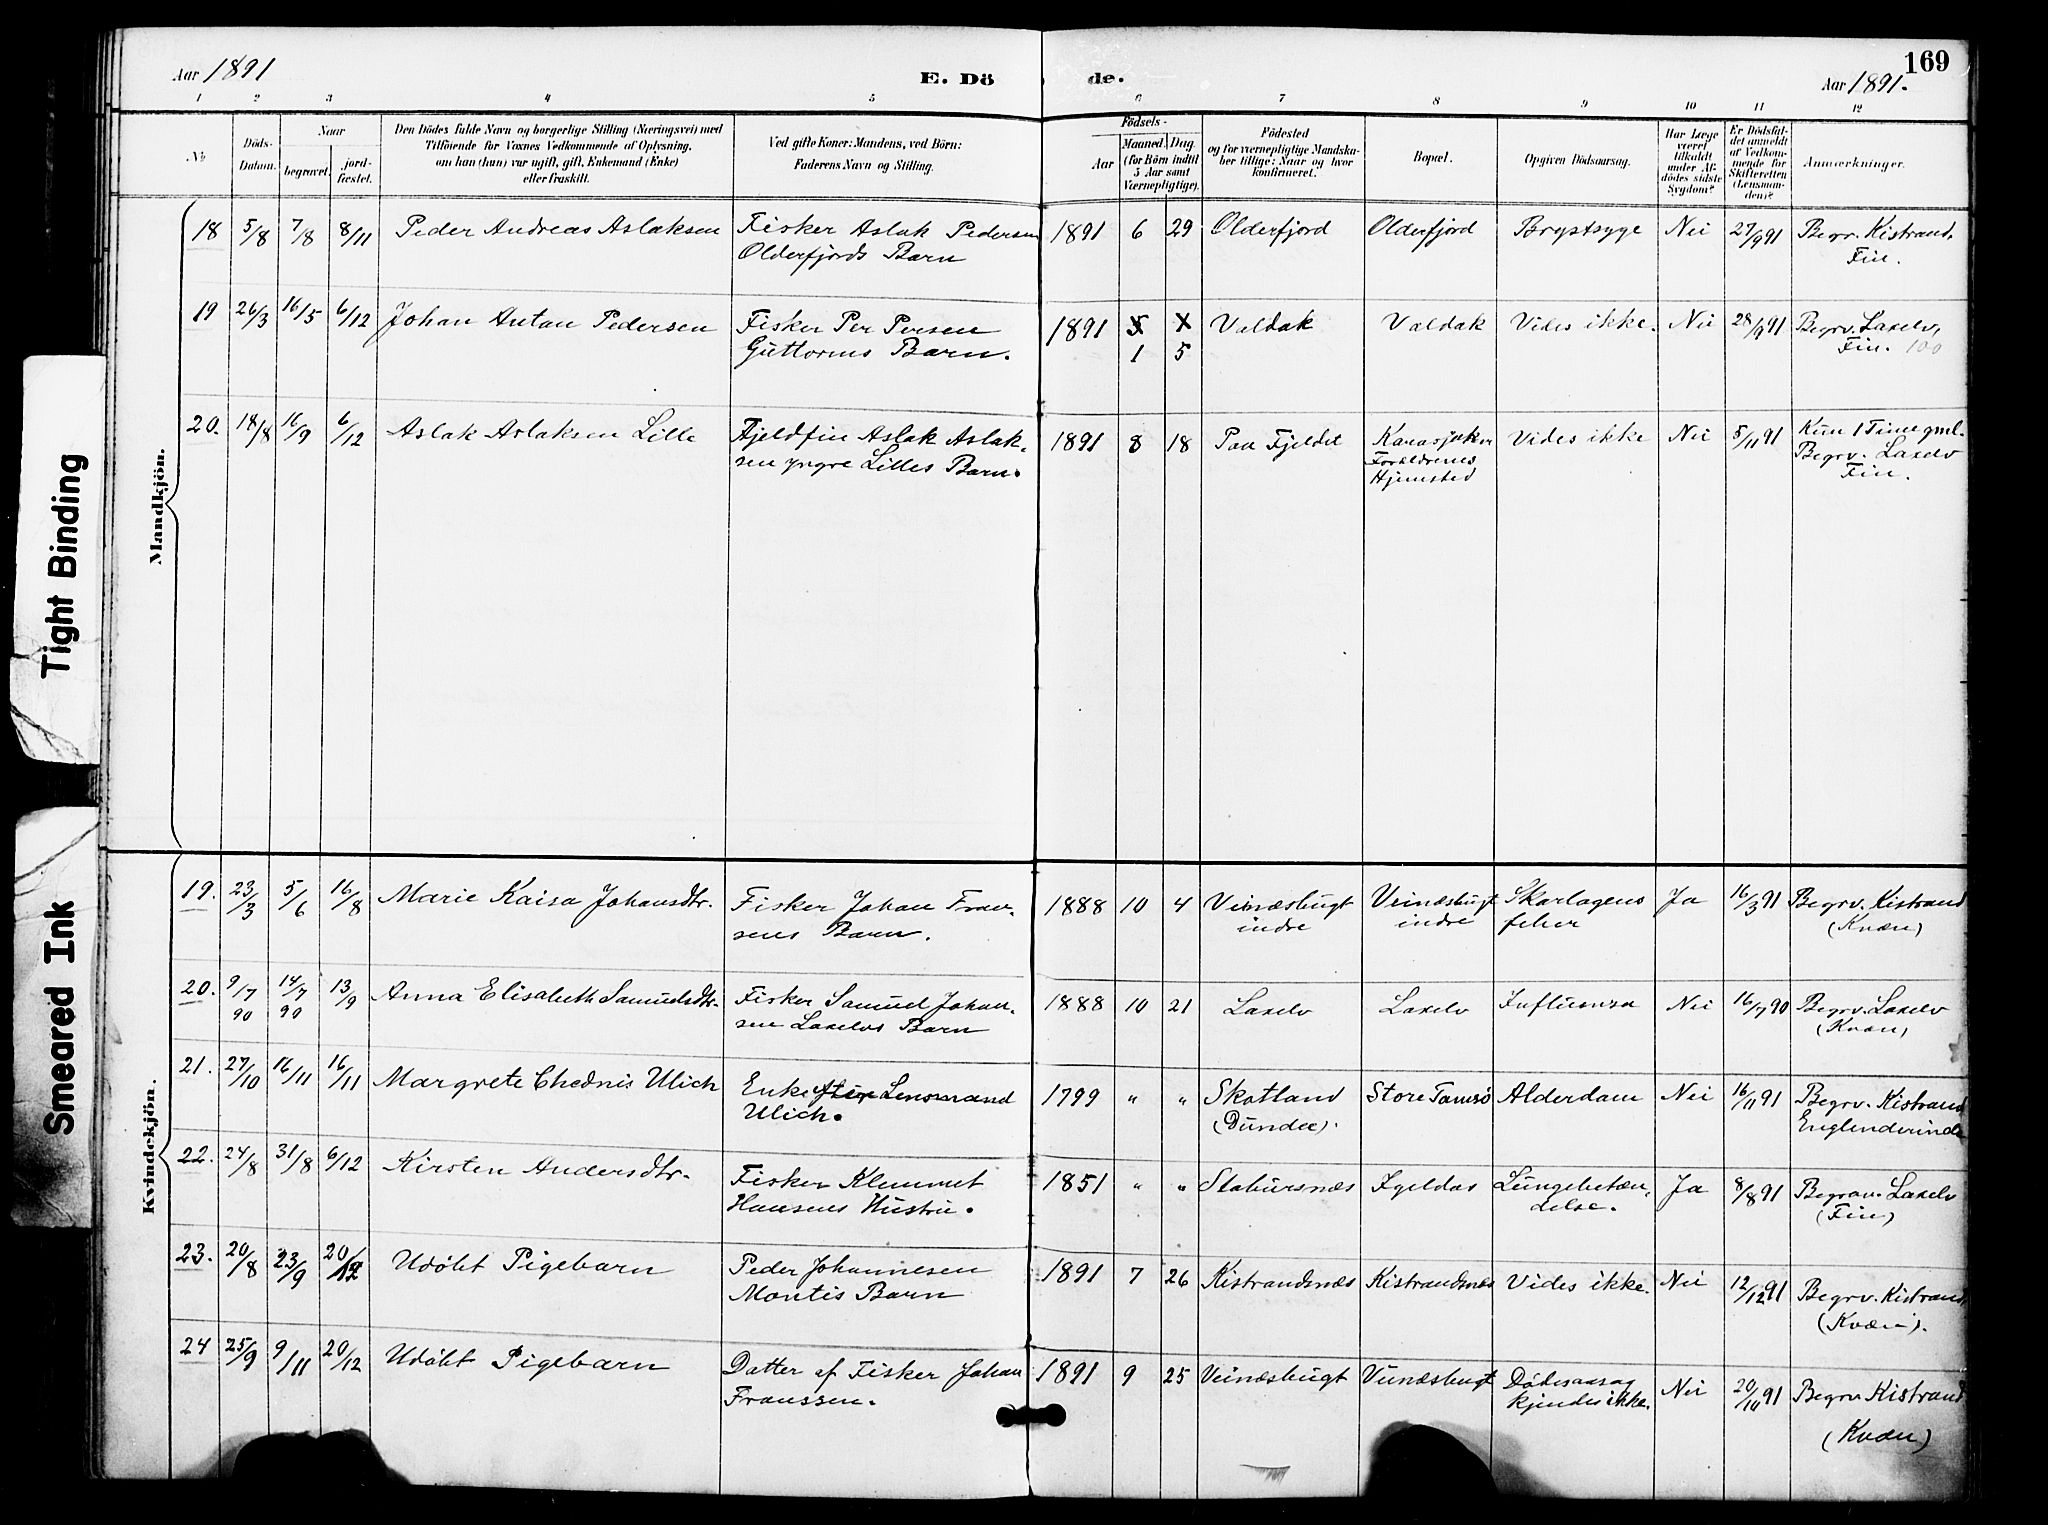 Aar 1891
E. Dö
de.
169
Aar 1891.
1 2 3 4 5 6 7 8 9 10 11 12
No
Döds-
Datum.
Naar
begravet.
jord-
fæstet.
Den Dödes fulde Navn og borgerlige Stilling (Næringsvei) med
Tilföiende for Voxnes Vedkommende af Oplysning,
om han (hun) var ugift, gift, Enkemand (Enke)
eller fraskilt.
Ved gifte Koner: Mandens, ved Börn:
Faderens Navn og Stilling.
Födsels-
Aar
Maaned. Dag
(for Börn indtil
5 Aar samt
Værnepligtige).
Födested
og for værnepligtige Mandska-
ber tillige: Naar og hvor
konfirmeret.
Bopæl.
Opgiven Dödsaarsag.
Har Læge
været
tilkaldt
under Af-
dödes sidste
Sygdom?
Er Dödsfal-
det anmeldt
af Vedkom-
mende for
Skifteretten
(Lensman-
den)?
Anmærkninger.
Mandkjön.
18 5/8 7/8 8/11 Peder Andreas Aslaksen Fisker Aslak Pedersen 1891 6 29 Olderfjord Olderfjord Brystsyge Nei 27/9 91 Begr. Kistrand,
Olderfjords Barn Fin.
19 26/3 16/5 6/12 Johan Antan Pedersen Fisker Per Persen 1891 5 X Valdak Valdak Vides ikke. Nei 28/9 91 Begrv. Laxelv,
Guttorms Barn. 1 5 Fin. 100
20. 18/8 16/9 6/12 Aslak Aslaksen Lille Fjeldfin Aslak Aslak- 1891 8 18 Paa Fjeldet Karasjoken Vides ikke Nei 5/11 91 Kun 1 Time gml.
sen yngre Lilles Barn. Forældrenes Begrv. Laxelv
Hjemsted Fin.
Kvindekjön.
19. 23/3 5/6 16/8 Marie Kaisa Johansdtr. Fisker Johan Fran- 1888 10 4 Veinæsbugt Veinæsbugt Skarlagens Ja 16/3 91 Begrv. Kistrand
sens Barn. indre indre feber (Kvæn)
20. 9/7 14/7 13/9 Anna Elisabeth Samuelsdtr. Fisker Samuel Johan- 1888 10 21 Laxelv Laxelv Influenza Nei 16/7 90 Begrv. Laxelv
90 90 sen Laxelvs Barn (Kvæn)
21. 27/10 16/11 16/11 Margrete Chednis Ulich Enke efter Lensmand 1799 " " Skotland Store Tamsø Alderdom Nei 16/11 91 Begrv. Kistrand
Ulich. (Dundee). Englenderinde
22. 24/8 31/8 6/12 Kirsten Andersdtr. Fisker Klemmet 1851 " " Stabursnæs Igeldas Lungebetæn- Ja 8/8 91 Begrav. Laxelv
Hansens Hustru. delse. (Fin)
23. 20/8 23/9 20/12 Udöbt Pigebarn Peder Johannesen 1891 7 26 Kistrandsnæs Kistrandsnæs Vides ikke. Nei 12/12 91 Begrv. Kistrand,
Montis Barn (Kvæn).
24 25/9 9/11 20/12 Udöbt Pigebarn Datter af Fisker Johan 1891 9 25 Veinæsbugt Veinæsbugt Dödsaarsag Nei 20/10 91 Begrv Kistrand
Franssen. kjendes ikke. (Kvæn)
Tight Binding
Smeared Ink